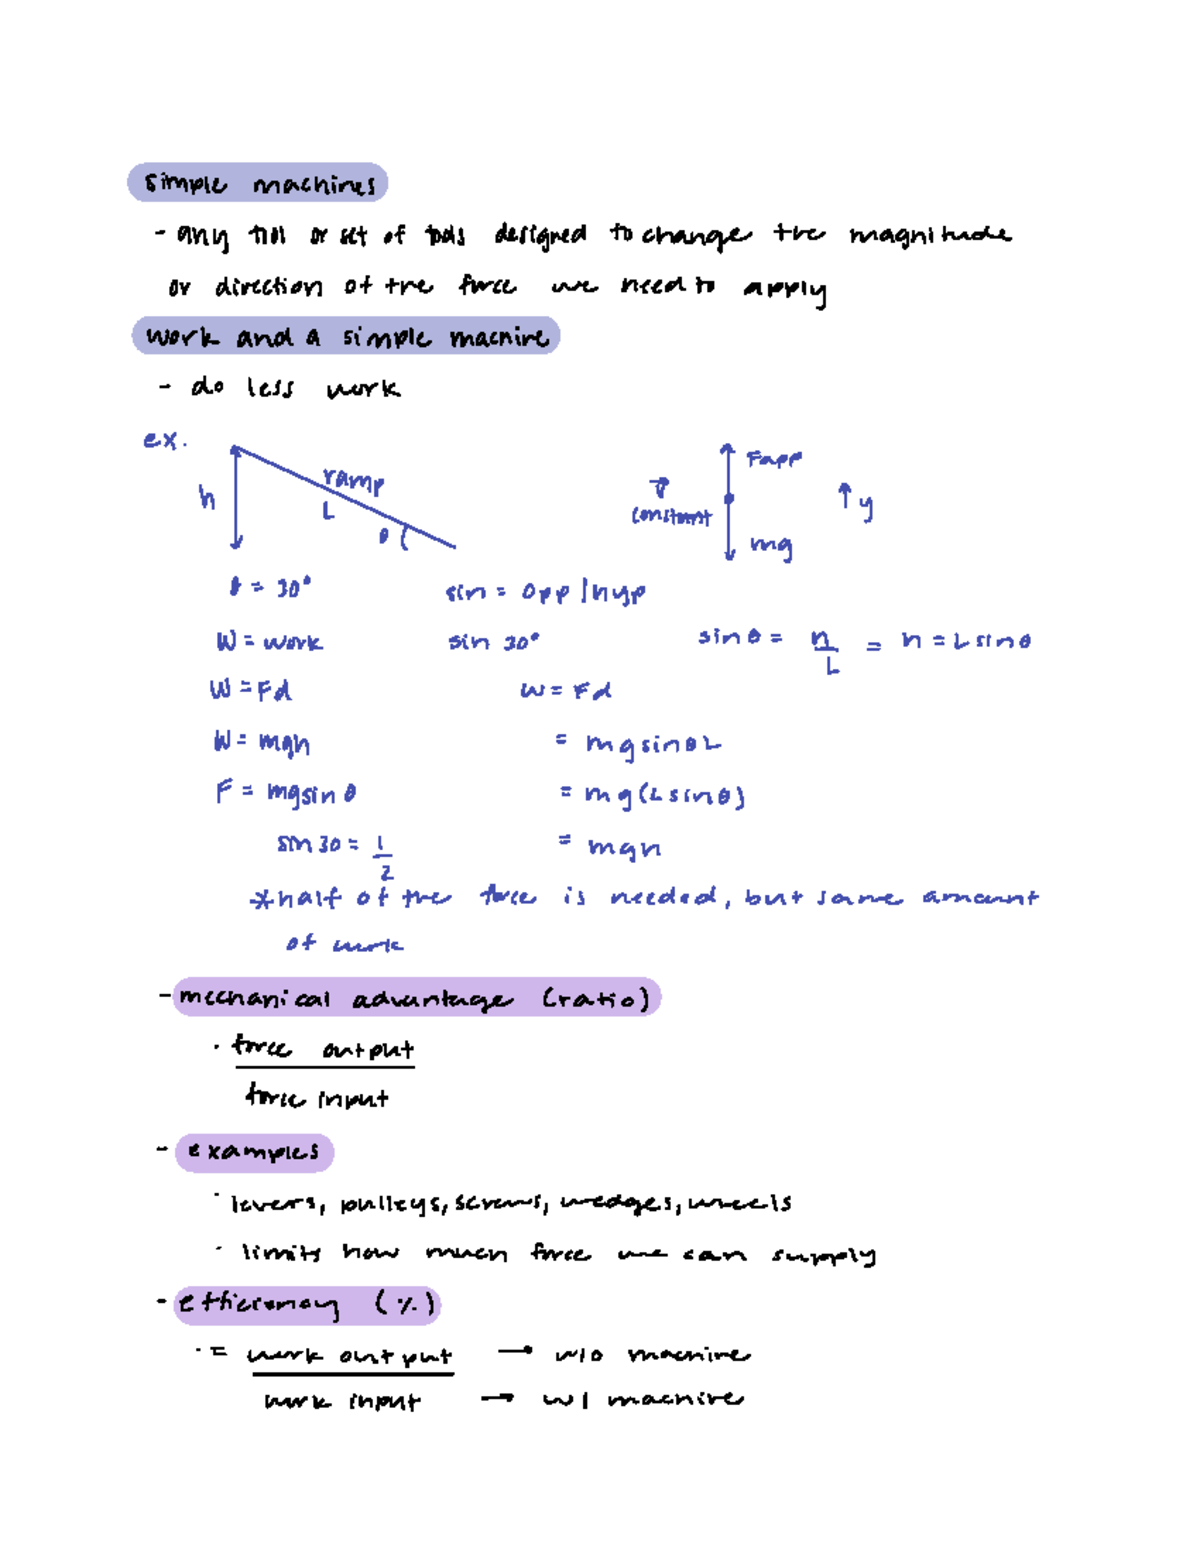 simple machines
- any tool or set of tools designed to change the magnitude
or direction of the force we need to apply
work and a simple machine
- do less work
ex.
h
ramp
L
θ
v
constant
Fapp
mg
↑ y
θ = 30°
sin = opp/hyp
W = work
sin 30°
sin θ = h/L = h = L sin θ
W = Fd
W = Fd
W = mgh
= mg sin θ L
F = mg sin θ
= mg (L sin θ)
sin 30 = 1/2
= mgh
* half of the force is needed, but same amount
of work
- mechanical advantage (ratio)
· force output
force input
- examples
· levers, pulleys, screws, wedges, wheels
· limits how much force we can supply
- efficiency (%)
· = work output → w/o machine
work input → w/ machine